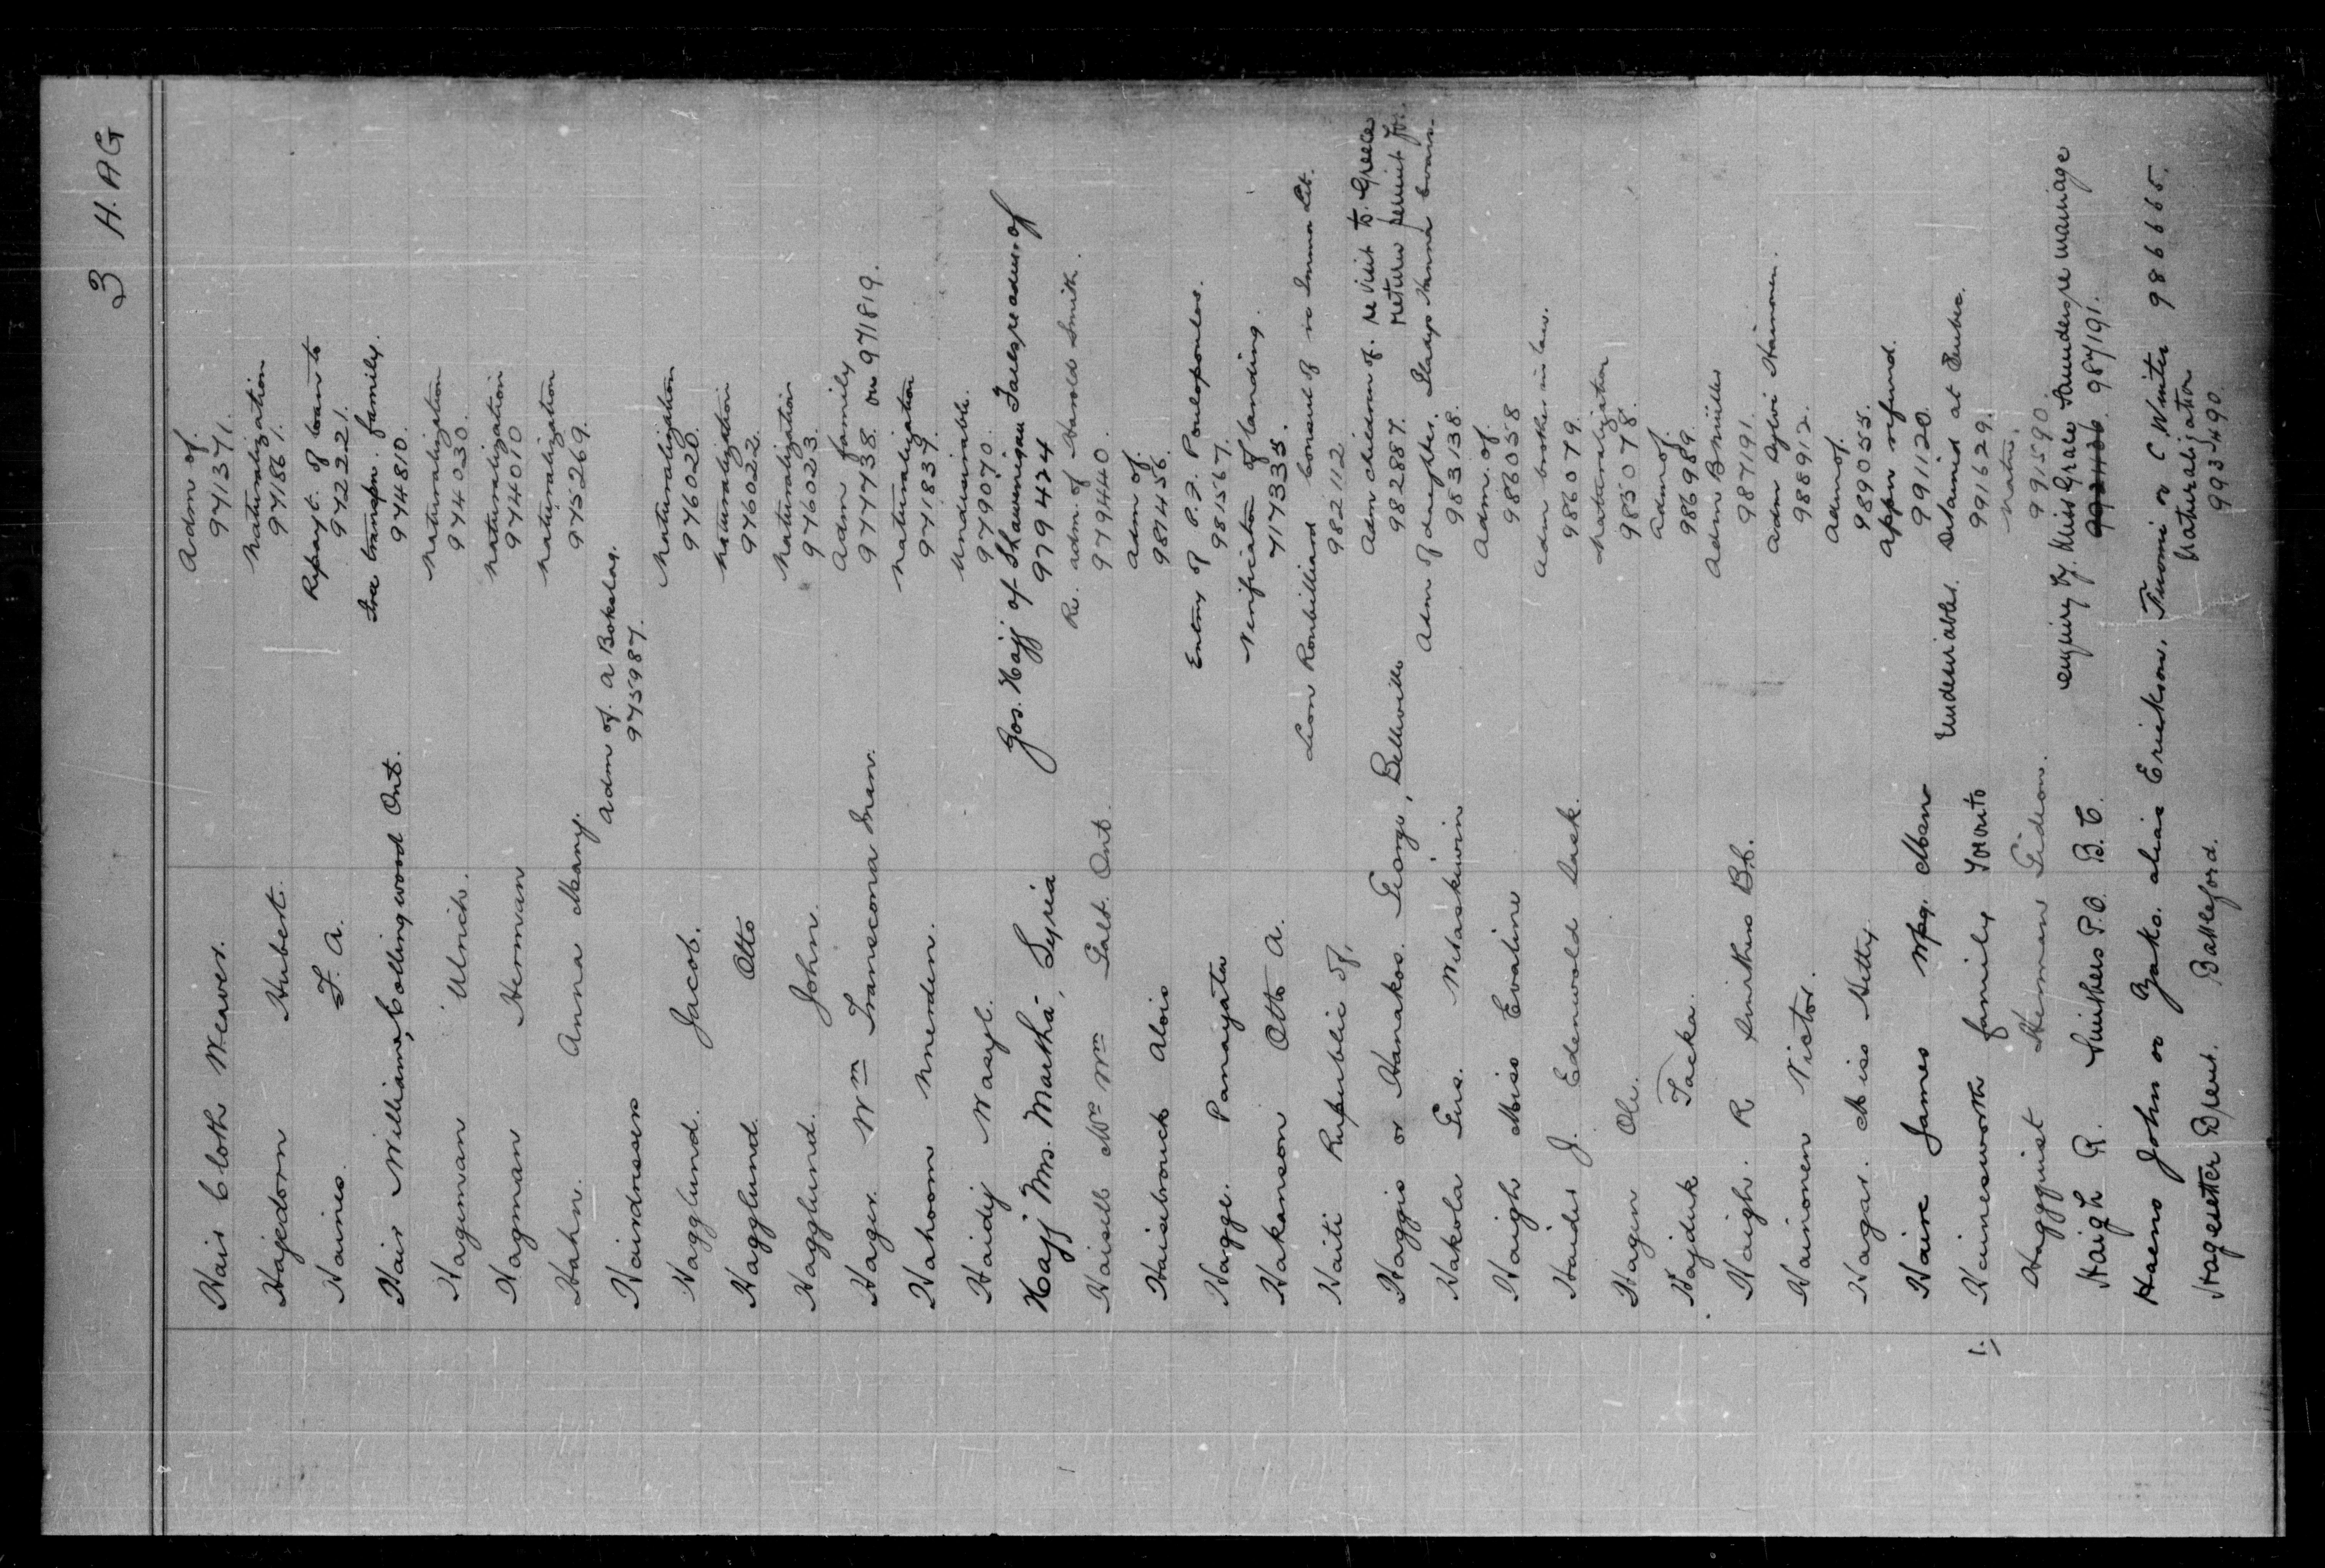 3 H. AG
Adm of.
Hair Cloth Weaver. 971371.
Naturalization
Hajedorn Hubert. 971861.
Repayt. of loan to
Haines. F. A. 972221.
Free transpn. family.
Hair William, Collingwood Ont. 974810.
Naturalization
Hageman Ulrich. 974030.
Naturalization
Hagman Herman 974010
Naturalization
Hahn. Anna Mary. 975269.
Adm of. A Bokslag.
Hairdressers 975987.
Naturalization
Hagglund. Jacob. 976020.
Naturalization
Hagglund Otto 976022.
Naturalization
Hagglund. John. 976023.
Adm family
Hager. Wm Transcona Man. 977738. on 971819.
Naturalization
Hahoom Nnerden. 971837.
Undesirable.
Haidij Wasyl. 979070.
Jos. Hajj of Shawenigan Falls, re adm. of
Hajj Mrs. Martha, Syria 979424
Re. adm. of Harold Smith.
Haisell Mrs Wm Galt. Ont. 979440.
Adm of.
Haisebrouck Alois 981456.
Entry of P.P. Poulopoulos.
Hagge. Panayata 981567.
Verification of landing.
Hakanson Otto A. 717335.
Leon Ronbilliard Consul of re Imm Lit.
Haiti Republic of, 982112
Adm children of. re visit to Greece
Haggis or Hanakos. George, Belleville 982887. return permit for.
Adm of daughter. Gladys Hanna
Hakola Gus. Wetaskiwin 983138.
Adm. of.
Haigh Miss Evaline 986058
Adm brother in law.
Haider J. Edenwold Sask. 986079.
Naturalization
Hagen Ole. 985078.
Adm of.
Hajduk Tacka. 986989.
Adm B Miller
Haigh. R Smithers B.C. 987191.
Adm Sylvi Hainonen.
Hainonen Victor. 988912.
Adm of.
Hagar. Miss Hetty 989055.
Appn refund.
Haire James Wpg. Man 991120.
Undesirables. Detained at Quebec.
1. Hainesworth family Toronto 991629.
Natn.
Haggquist Herman Gideon. 991590.
enquiry by Miss Grace Saunders re marriage
Haigh R. Smithers P.O. B.C. 987191.
Haeno John or Jako. alias Erickson, Tuomi or C Winter 986665.
Naturalization
Hagester Djeut. Battleford. 993490.